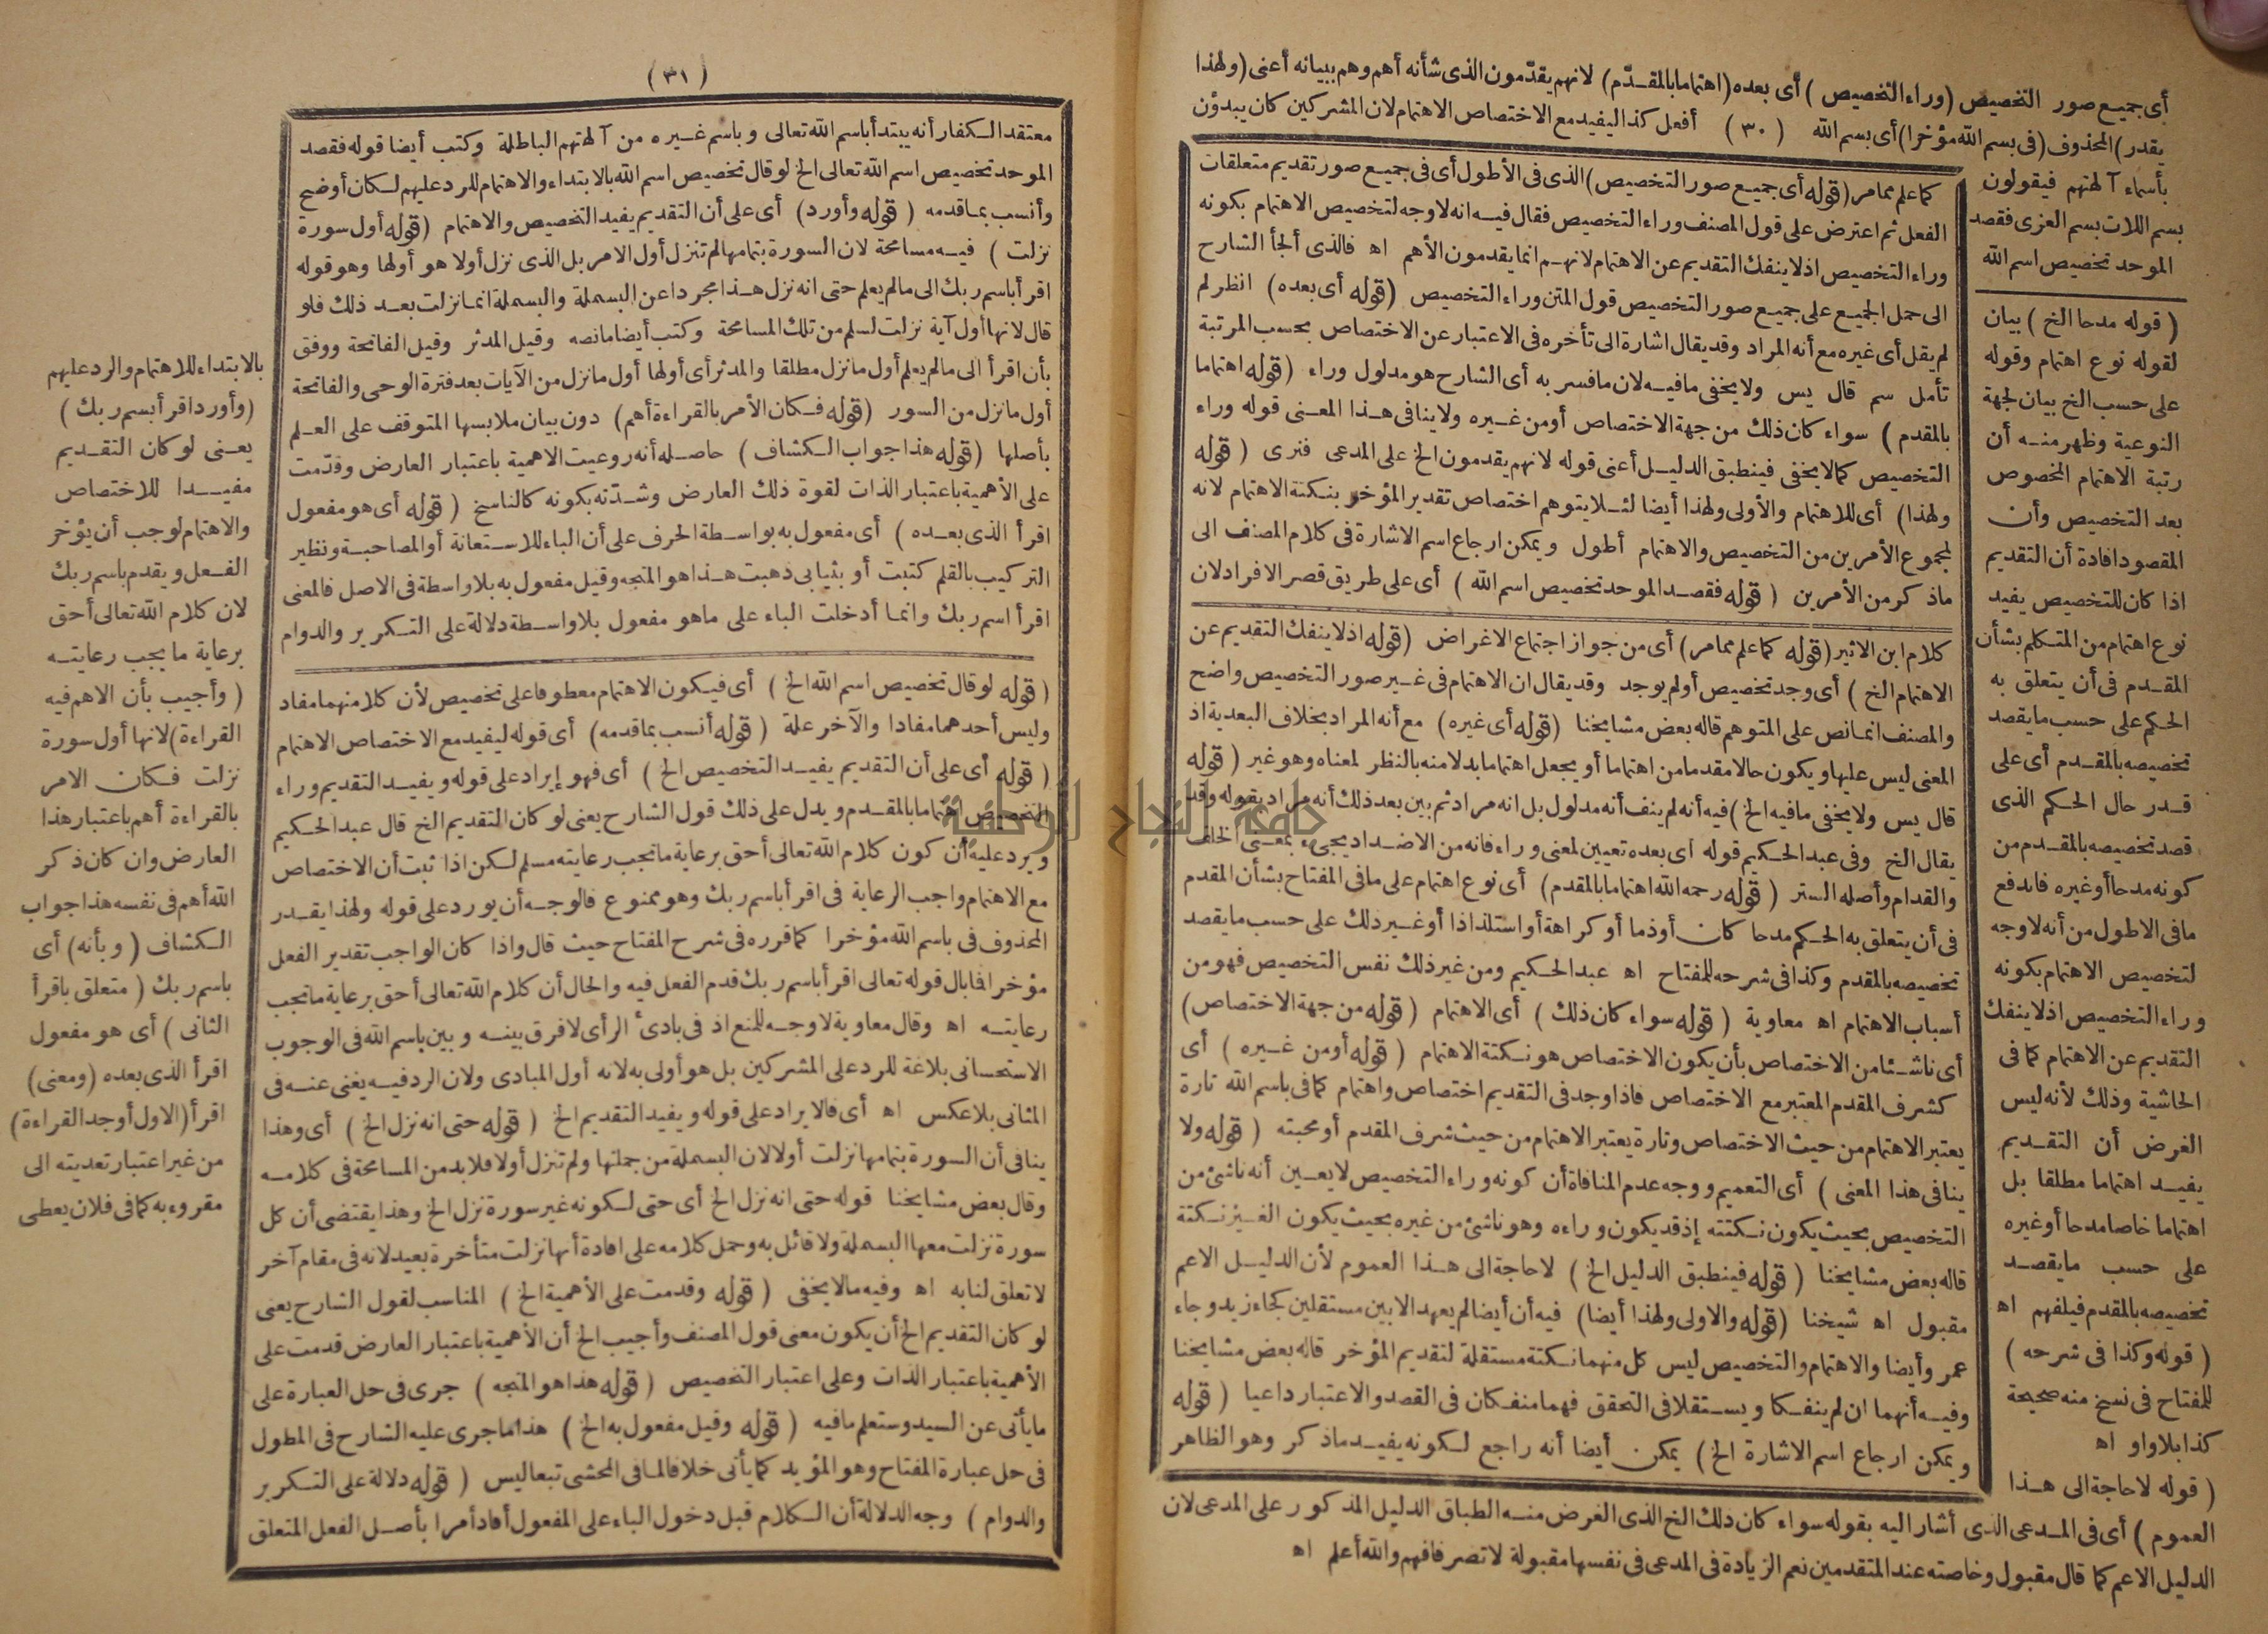 أى جميع صور التخصيص (وراء التخصيص) أى بعده (اهتماما بالمقدّم) لانهم يقدّمون الذى شأنه أهم وهم ببيانه أعنى (ولهذا
يقدر) المحذوف (فى بسم الله مؤخرا) أى بسم الله (٣٠) أفعل كذا ليفيد مع الاختصاص الاهتمام لان المشركين كان يبدؤن
بأسماء آلهتهم فيقولون
بسم اللات بسم العزى فقصد
الموحد تخصيص اسم الله
كما علم مما مر (قوله أى جميع صور التخصيص) الذى فى الأطول أى فى جميع صور تقديم متعلقات
الفعل ثم اعترض على قول المصنف وراء التخصيص فقال فيه انه لا وجه لتخصيص الاهتمام بكونه
وراء التخصيص اذ لا ينفك التقديم عن الاهتمام لانهم انما يقدمون الأهم اه فالذى ألجأ الشارح
الى حمل الجميع على جميع صور التخصيص قول المتن وراء التخصيص (قوله أى بعده) انظر لم
لم يقل أى غيره مع أنه المراد وقد يقال اشارة الى تأخره فى الاعتبار عن الاختصاص بحسب المرتبة
تأمل سم قال يس ولا يخفى ما فيه لان ما فسر به أى الشارح هو مدلول وراء (قوله اهتماما
بالمقدم) سواء كان ذلك من جهة الاختصاص أو من غيره ولا ينافى هذا المعنى قوله وراء
التخصيص كما لا يخفى فينطبق الدليل أعنى قوله لانهم يقدمون الخ على المدعى فنرى (قوله
ولهذا) أى للاهتمام والأولى ولهذا أيضا لئلا يتوهم اختصاص تقدير المؤخر بنكتة الاهتمام لانه
لمجموع الأمرين من التخصيص والاهتمام أطول ويمكن ارجاع اسم الاشارة فى كلام المصنف الى
ما ذكر من الأمرين (قوله فقصد الموحد تخصيص اسم الله) أى على طريق قصر الافراد لان
كلام ابن الاثير (قوله كما علم مما مر) أى من جواز اجتماع الاغراض (قوله اذ لا ينفك التقديم عن
الاهتمام الخ) أى وجد تخصيص أو لم يوجد وقد يقال ان الاهتمام فى غير صور التخصيص واضح
والمصنف انما نص على المتوهم قاله بعض مشايخنا (قوله أى غيره) مع أنه المراد بخلاف البعدية اذ
المعنى ليس عليها ويكون حالا مقدما من اهتماما أو يجعل اهتماما بدلا منه بالنظر لمعناه وهو غير (قوله
قال يس ولا يخفى ما فيه الخ) فيه أنه لم ينف أنه مدلول بل انه مراد ثم بين بعد ذلك أنه مراد بقوله وقد
يقال الخ وفى عبد الحكيم قوله أى بعده تعيين لمعنى وراء فانه من الاضداد يجىء بمعنى الخلف
والقدام وأصله الستر (قوله رحمه الله اهتماما بالمقدم) أى نوع اهتمام على ما فى المفتاح بشأن المقدم
فى أن يتعلق به الحكم مدحا كان أو ذما أو كراهة أو استلذاذا أو غير ذلك على حسب ما يقصد
تخصيصه بالمقدم وكذا فى شرحه للمفتاح اه عبد الحكيم ومن غير ذلك نفس التخصيص فهو من
أسباب الاهتمام اه معاوية (قوله سواء كان ذلك) أى الاهتمام (قوله من جهة الاختصاص)
أى ناشئا من الاختصاص بأن يكون الاختصاص هو نكتة الاهتمام (قوله أو من غيره) أى
كشرف المقدم المعتبر مع الاختصاص فاذا وجد فى التقديم اختصاص واهتمام كما فى باسم الله تارة
يعتبر الاهتمام من حيث الاختصاص وتارة يعتبر الاهتمام من حيث شرف المقدم أو محبته (قوله ولا
ينافى هذا المعنى) أى التعميم ووجه عدم المنافاة أن كونه وراء التخصيص لا يعين أنه ناشئ من
التخصيص بحيث يكون نكتته إذ قد يكون وراءه وهو ناشئ من غيره بحيث يكون الغير نكتة
قاله بعض مشايخنا (قوله فينطبق الدليل الخ) لا حاجة الى هذا العموم لأن الدليل الاعم
مقبول اه شيخنا (قوله والاولى ولهذا أيضا) فيه أن أيضا لم يعهد الا بين مستقلين كجاء زيد وجاء
عمر وأيضا والاهتمام والتخصيص ليس كل منهما نكتة مستقلة لتقديم المؤخر قاله بعض مشايخنا
وفيه أنهما ان لم ينفكا ويستقلا فى التحقق فهما منفكان فى القصد والاعتبار داعيا (قوله
ويمكن ارجاع اسم الاشارة الخ) يمكن أيضا أنه راجع لكونه يفيد ما ذكر وهو الظاهر
(قوله مدحا الخ) بيان
لقوله نوع اهتمام وقوله
على حسب الخ بيان لجهة
النوعية وظهر منه أن
رتبة الاهتمام المخصوص
بعد التخصيص وأن
المقصود افادة أن التقديم
اذا كان للتخصيص يفيد
نوع اهتمام من المتكلم بشأن
المقدم فى أن يتعلق به
الحكم على حسب ما يقصد
تخصيصه بالمقدم أى على
قدر حال الحكم الذى
قصد تخصيصه بالمقدم من
كونه مدحا أو غيره فاندفع
ما فى الاطول من أنه لا وجه
لتخصيص الاهتمام بكونه
وراء التخصيص اذ لا ينفك
التقديم عن الاهتمام كما فى
الحاشية وذلك لأنه ليس
الغرض أن التقديم
يفيد اهتماما مطلقا بل
اهتماما خاصا مدحا أو غيره
على حسب ما يقصد
تخصيصه بالمقدم فيلفهم اه
(قوله وكذا فى شرحه)
للمفتاح فى نسخ منه صحيحة
كذا بلا واو اه
(قوله لا حاجة الى هذا
العموم) أى فى المدعى الذى أشار اليه بقوله سواء كان ذلك الخ الذى الغرض منه انطباق الدليل المذكور على المدعى لان
الدليل الاعم كما قال مقبول وخاصته عند المتقدمين نعم الزيادة فى المدعى فى نفسها مقبولة لا تضر فافهم والله أعلم اه
(٣١)
معتقد الكفار أنه يبتدأ باسم الله تعالى وباسم غيره من آلهتهم الباطلة وكتب أيضا قوله فقصد
الموحد تخصيص اسم الله تعالى الخ لو قال تخصيص اسم الله بالابتداء والاهتمام للرد عليهم لكان أوضح
وأنسب بما قدمه (قوله وأورد) أى على أن التقديم يفيد التخصيص والاهتمام (قوله أول سورة
نزلت) فيه مسامحة لان السورة بتمامها لم تنزل أول الامر بل الذى نزل أولا هو أولها وهو قوله
اقرأ باسم ربك الى ما لم يعلم حتى انه نزل هذا مجردا عن البسملة والبسملة انما نزلت بعد ذلك فلو
قال لانها أول آية نزلت لسلم من تلك المسامحة وكتب أيضا ما نصه وقيل المدثر وقيل الفاتحة ووفق
بأن اقرأ الى ما لم يعلم أول ما نزل مطلقا والمدثر أى أولها أول ما نزل من الآيات بعد فترة الوحى والفاتحة
أول ما نزل من السور (قوله فكان الأمر بالقراءة أهم) دون بيان ملابسها المتوقف على العلم
بأصلها (قوله هذا جواب الكشاف) حاصله أنه روعيت الاهمية باعتبار العارض وقدّمت
على الأهمية باعتبار الذات لقوة ذلك العارض وشدّته بكونه كالناسخ (قوله أى هو مفعول
اقرأ الذى بعده) أى مفعول به بواسطة الحرف على أن الباء للاستعانة أو المصاحبة ونظير
التركيب بالقلم كتبت أو بثيابى ذهبت هذا هو المتجه وقيل مفعول به بلا واسطة فى الاصل فالمعنى
اقرأ اسم ربك وانما أدخلت الباء على ما هو مفعول بلا واسطة دلالة على التكرير والدوام
(قوله لو قال تخصيص اسم الله الخ) أى فيكون الاهتمام معطوفا على تخصيص لأن كلا منهما مفاد
وليس أحدهما مفادا والآخر علة (قوله أنسب بما قدمه) أى قوله ليفيد مع الاختصاص الاهتمام
(قوله أى على أن التقديم يفيد التخصيص الخ) أى فهو إيراد على قوله ويفيد التقديم وراء
التخصيص اهتماما بالمقدم ويدل على ذلك قول الشارح يعنى لو كان التقديم الخ قال عبد الحكيم
ويرد عليه أن كون كلام الله تعالى أحق برعاية ما تجب رعايته مسلم لكن اذا ثبت أن الاختصاص
مع الاهتمام واجب الرعاية فى اقرأ باسم ربك وهو ممنوع فالوجه أن يورد على قوله ولهذا يقدر
المحذوف فى باسم الله مؤخرا كما قرره فى شرح المفتاح حيث قال واذا كان الواجب تقدير الفعل
مؤخرا فما بال قوله تعالى اقرأ باسم ربك قدم الفعل فيه والحال أن كلام الله تعالى أحق برعاية ما تجب
رعايته اه وقال معاوية لا وجه للمنع اذ فى بادئ الرأى لا فرق بينه وبين باسم الله فى الوجوب
الاستحسانى بلاغة للرد على المشركين بل هو أولى به لانه أول المبادى ولان الرد فيه يغنى عنه فى
الثانى بلا عكس اه أى فالايراد على قوله ويفيد التقديم الخ (قوله حتى انه نزل الخ) أى وهذا
ينافى أن السورة بتمامها نزلت أولا لان البسملة من جملتها ولم تنزل أولا فلا بد من المسامحة فى كلامه
وقال بعض مشايخنا قوله حتى انه نزل الخ أى حتى لكونه غير سورة نزل الخ وهذا يقتضى أن كل
سورة نزلت معها البسملة ولا قائل به وحمل كلامه على افادة أنها نزلت متأخرة بعيد لانه فى مقام آخر
لا تعلق لنا به اه وفيه ما لا يخفى (قوله وقدمت على الأهمية الخ) المناسب لقول الشارح يعنى
لو كان التقديم الخ أن يكون معنى قول المصنف وأجيب الخ أن الأهمية باعتبار العارض قدمت على
الأهمية باعتبار الذات وعلى اعتبار التخصيص (قوله هذا هو المتجه) جرى فى حل العبارة على
ما يأتى عن السيد وستعلم ما فيه (قوله وقيل مفعول به الخ) هذا ما جرى عليه الشارح فى المطول
فى حل عبارة المفتاح وهو المؤيد كما يأتى خلافا لما فى المحشى تبعا ليس (قوله دلالة على التكرير
والدوام) وجه الدلالة أن الكلام قبل دخول الباء على المفعول أفاد أمرا بأصل الفعل المتعلق
بالابتداء للاهتمام والرد عليهم
(وأورد اقرأ بسم ربك)
يعنى لو كان التقديم
مفيدا للاختصاص
والاهتمام لوجب أن يؤخر
الفعل ويقدم باسم ربك
لان كلام الله تعالى أحق
برعاية ما يجب رعايته
(وأجيب بأن الاهم فيه
القراءة) لانها أول سورة
نزلت فكان الامر
بالقراءة أهم باعتبار هذا
العارض وان كان ذكر
الله أهم فى نفسه هذا جواب
الكشاف (وبأنه) أى
باسم ربك (متعلق باقرأ
الثانى) أى هو مفعول
اقرأ الذى بعده (ومعنى)
اقرأ (الاول أوجد القراءة)
من غير اعتبار تعديته الى
مقروء به كما فى فلان يعطى
جامعة النجاح الوطنية